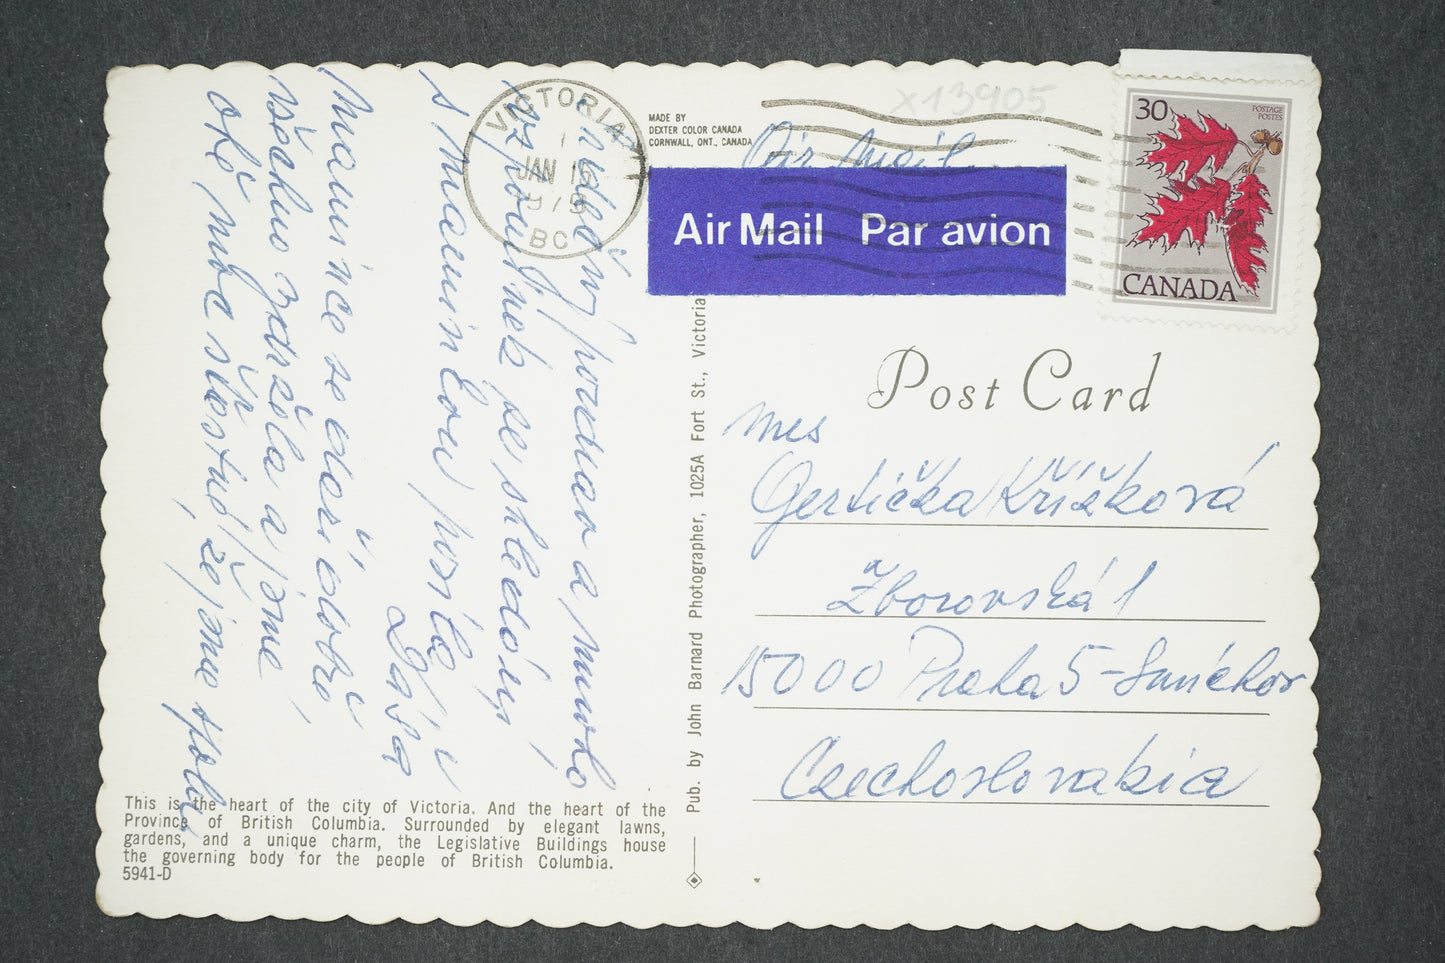 x13905
MADE BY
DEXTER COLOR CANADA
CORNWALL, ONT., CANADA
VICTORIA
JAN 16
BC
Air Mail
Air Mail Par avion
30
POSTAGE
POSTES
CANADA
Post Card
Mrs
Gertička Křížková
Zborovská 1
15000 Praha 5-Smíchov
Czechoslovakia
Pub. by John Barnard Photographer, 1025A Fort St., Victoria
a mnoho
vzpomínek
s maminkou posílá
Dáša
Mamince se daří dobře
všechno a jsme
obě moc že jsme
This is the heart of the city of Victoria. And the heart of the
Province of British Columbia. Surrounded by elegant lawns,
gardens, and a unique charm, the Legislative Buildings house
the governing body for the people of British Columbia.
5941-D